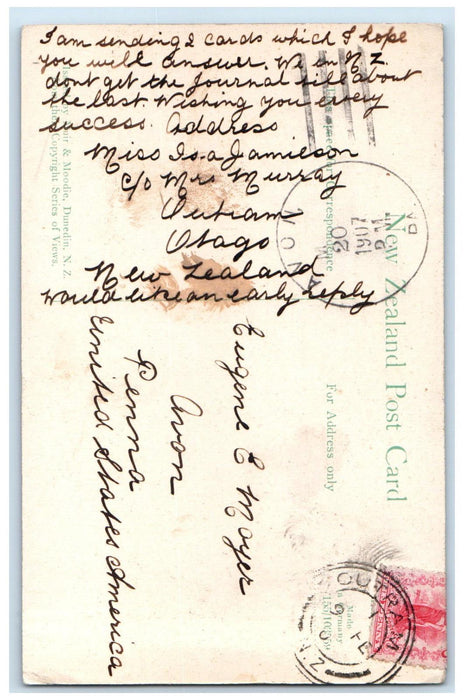 I am sending 2 cards which I hope
you will answer. We in N.Z.
dont get the Journal till about
the last. Wishing you every
success. Address
Miss Isa Jamieson
c/o Mrs Murray
Outram
Otago
New Zealand
would like an early reply
New Zealand Post Card
For Address only
Eugene C Moyer
Avon
Penna
United States America
& Moodie, Dunedin, N. Z.
Copyright Series of Views.
correspondence
AVON
MAR
20
1907
PA
OUTRAM
FE
N.Z
Made
in Germany